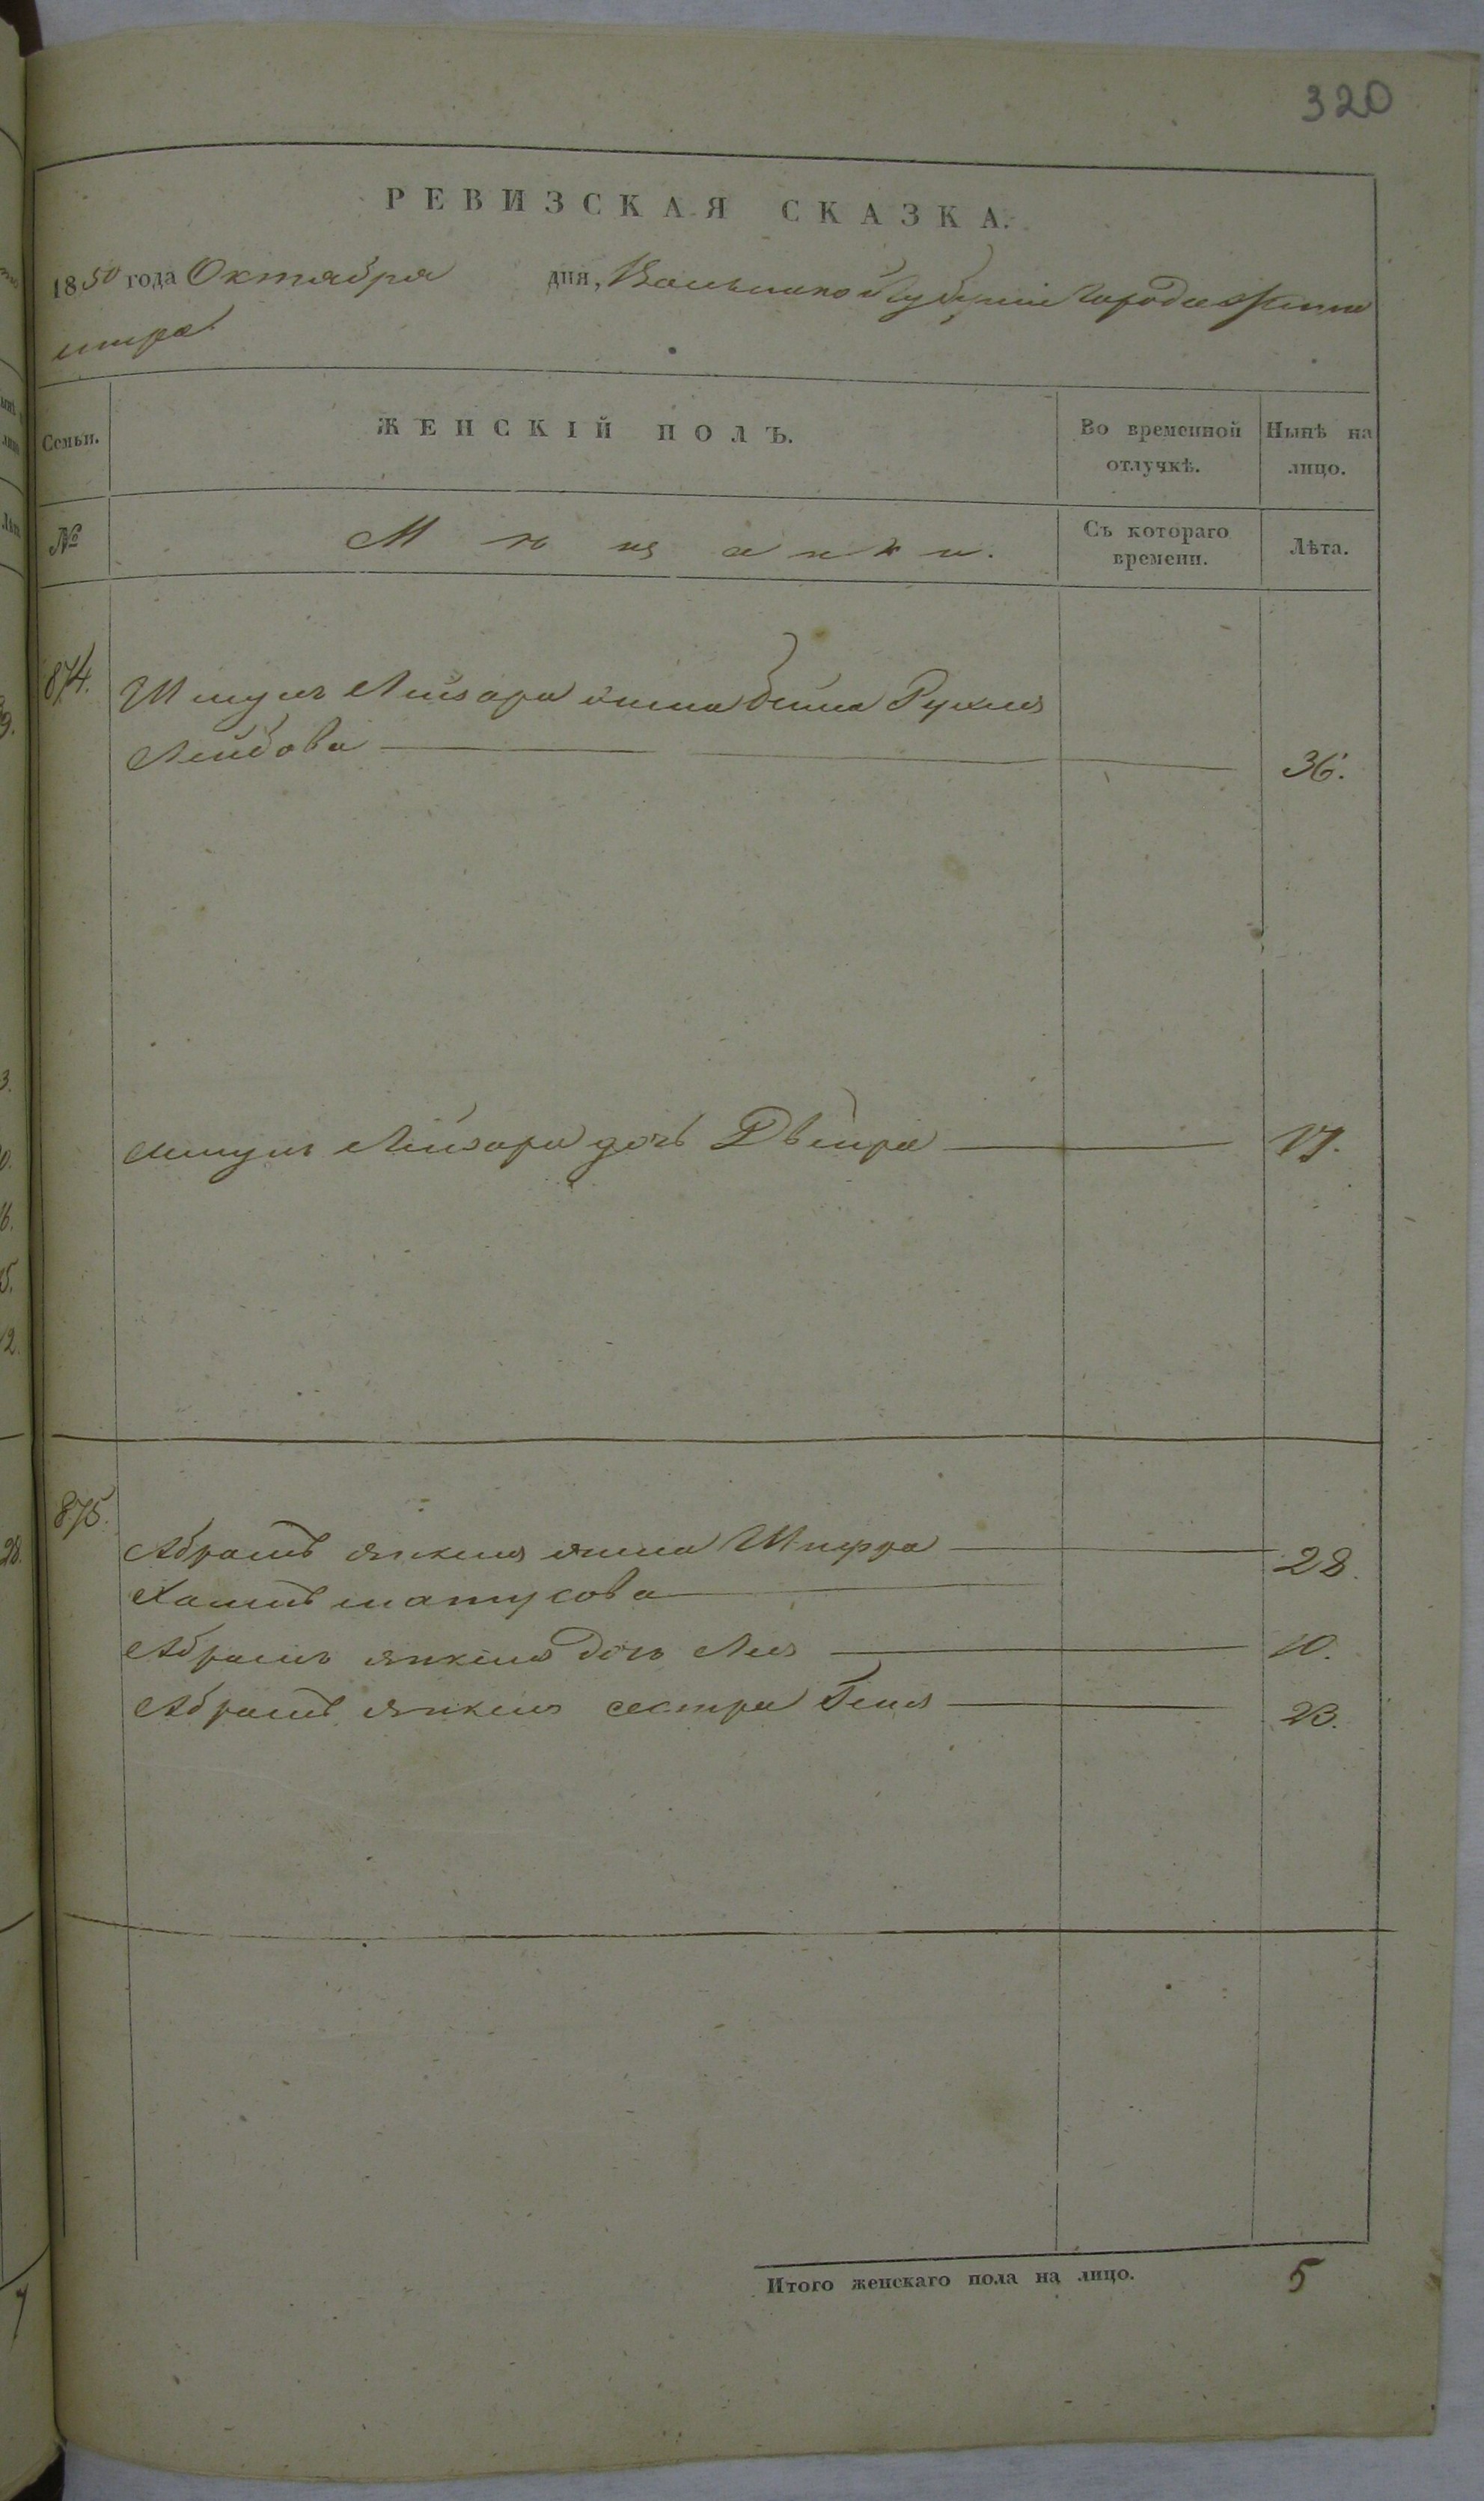 320
РЕВИЗСКАЯ СКАЗКА.
1850 года Октября дня, Волынской Губернии Города Жито
мира
Семьи. ЖЕНСКІЙ ПОЛЪ. Во временной отлучкѣ. Нынѣ на лицо.
№ Мѣщанки. Съ котораго времени. Лѣта.
874. Лейзора жена Рухля
Лейбова 36.
Лейзора дочь Двейра 17.
875. Абрамъ Янкеля жена Шифра 28.
Хаимъ Матусова
Абрамъ Янкеля дочь Лея 10.
Абрамъ Янкеля сестра Геня 23.
Итого женскаго пола на лицо. 5